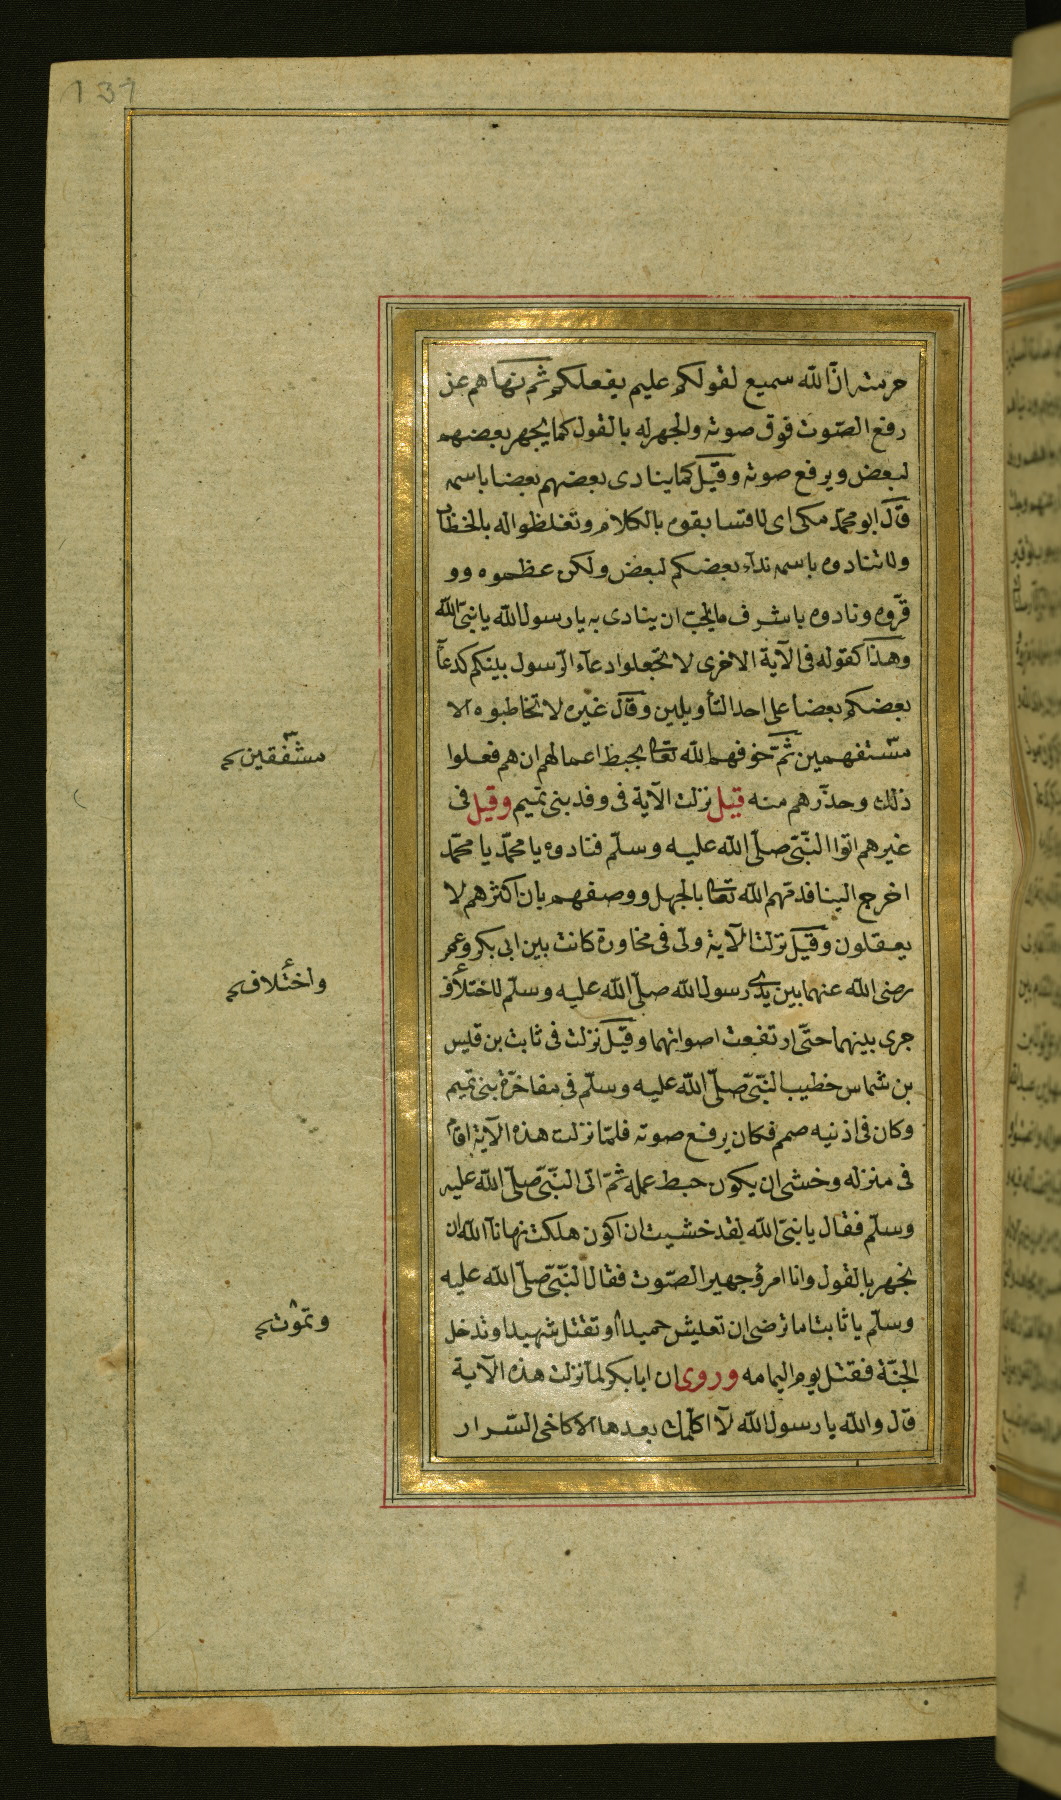 137
حرمته ان الله سميع لقولكم عليم بفعلكم ثم نهاهم عن
رفع الصوت فوق صوته والجهر له بالقول كما يجهر بعضهم
لبعض ويرفع صوته وقيل كما ينادى بعضهم بعضا باسمه
قال ابو محمد مكى اى لا تسابقوه بالكلام وتغلظوا له بالخطاب
ولا تنادوه باسمه نداء بعضكم لبعض ولكن عظموه وو
قروه ونادوه باشرف ما يحب ان ينادى به يا رسول الله يا نبى الله
وهذا كقوله فى الآية الاخرى لا تجعلوا دعاء الرسول بينكم كدعاء
بعضكم بعضا على احد التأويلين وقال غيره لا تخاطبوه الا
مستفهمين ثم خوفهم الله تعالى بحبط اعمالهم ان هم فعلوا
مشفقين
ذلك وحذرهم منه قيل نزلت الآية فى وفد بنى تميم وقيل فى
غيرهم اتوا النبى صلى الله عليه وسلم فنادوه يا محمد يا محمد
اخرج الينا فذمهم الله تعالى بالجهل ووصفهم بان اكثرهم لا
يعقلون وقيل نزلت الآية ولى فى محاورة كانت بين ابى بكر وعمر
رضى الله عنهما بين يدى رسول الله صلى الله عليه وسلم لاختلاف
واختلاف
جرى بينهما حتى ارتفعت اصواتهما وقيل نزلت فى ثابت بن قيس
بن شماس خطيب النبى صلى الله عليه وسلم فى مفاخرة بنى تميم
وكان فى اذنيه صمم فكان يرفع صوته فلما نزلت هذه الآية اقام
فى منزله وخشى ان يكون حبط عمله ثم اتى النبى صلى الله عليه
وسلم فقال يا نبى الله لقد خشيت ان اكون هلكت نهانا الله ان
نجهر بالقول وانا امرؤ جهير الصوت فقال النبى صلى الله عليه
وسلم يا ثابت اما ترضى ان تعيش حميدا او تقتل شهيدا وتدخل
وتموت
الجنة فقتل يوم اليمامه وروى ان ابا بكر لما نزلت هذه الآية
قال والله يا رسول الله لا اكلمك بعدها الا كاخى السرار